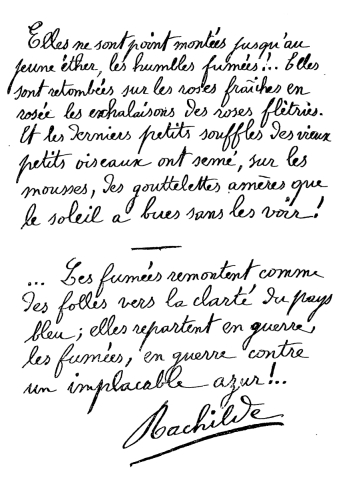 Elles ne sont point montées jusqu'au
jeune éther, les humbles fumées!.. Elles
sont retombées sur les roses fraîches en
rosée les exhalaisons des roses flétries.
Et les derniers petits souffles des vieux
petits oiseaux ont semé, sur les
mousses, des gouttelettes amères que
le soleil a bues sans les voir!
... Les fumées remontent comme
des folles vers la clarté du pays
bleu; elles repartent en guerre,
les fumées, en guerre contre
un implacable azur!..
Rachilde